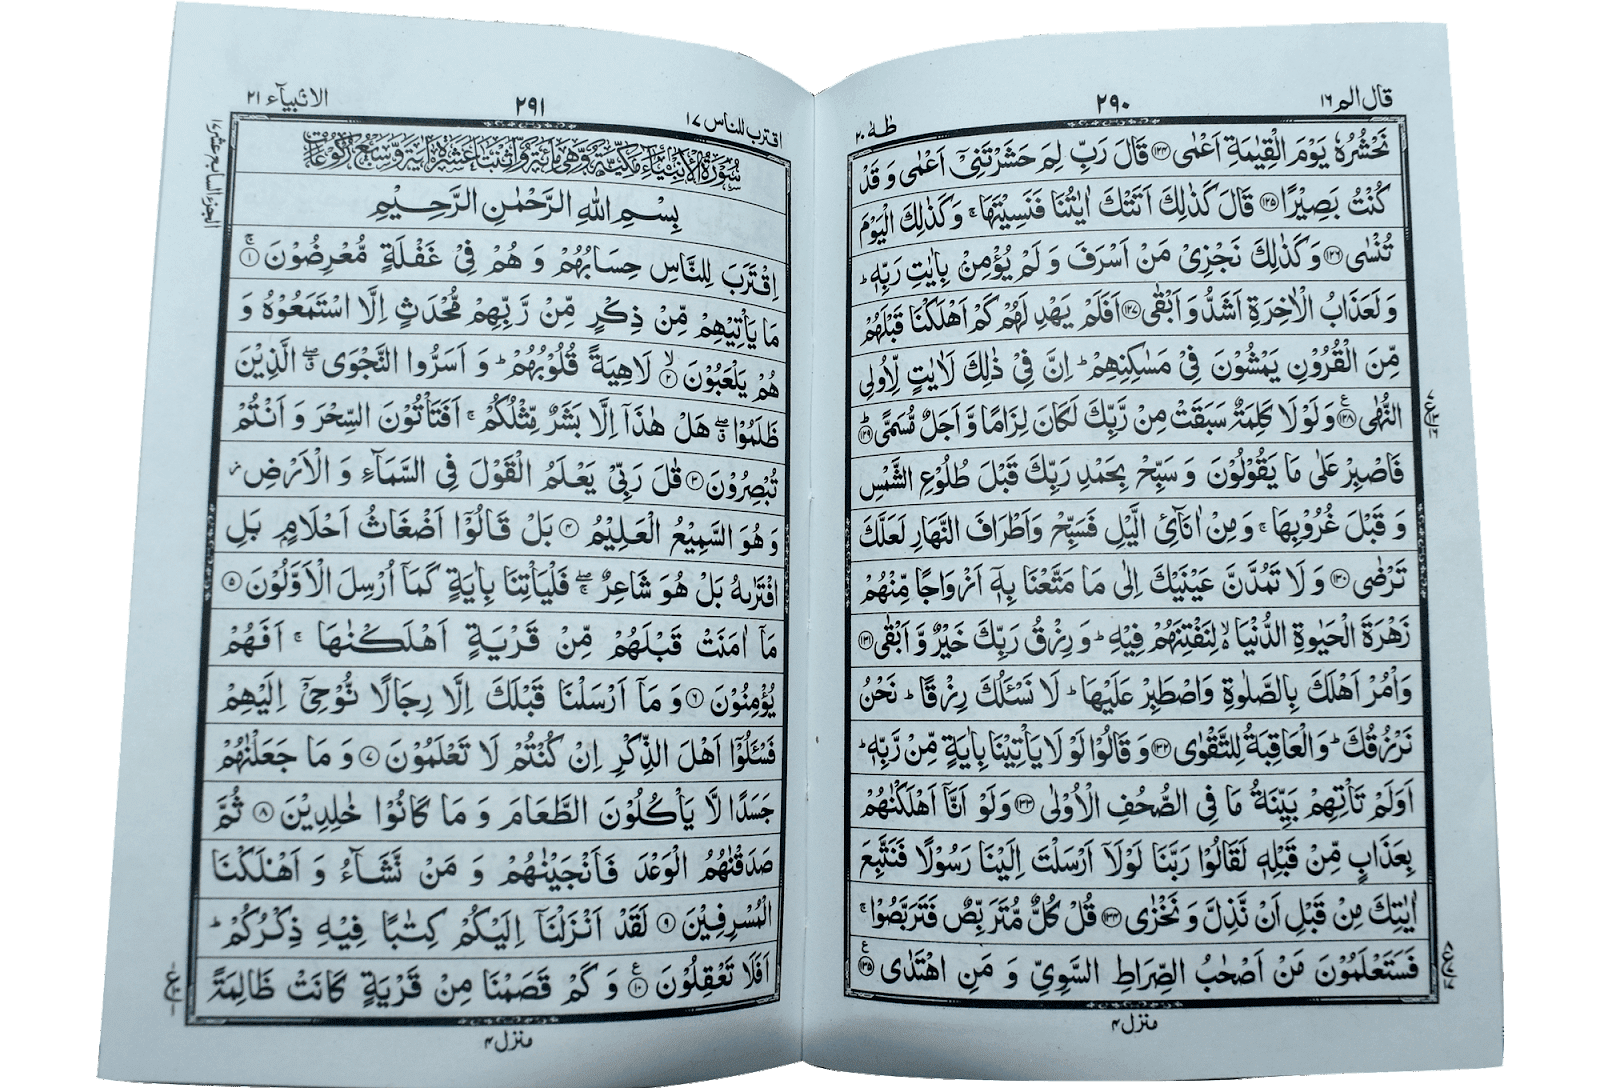 قال الم ١٦
٢٩٠
طٰهٰ ٢٠
نَحْشُرُهٗ یَوْمَ الْقِیٰمَةِ اَعْمٰی ۝۱۲۴ قَالَ رَبِّ لِمَ حَشَرْتَنِیْۤ اَعْمٰی وَ قَدْ
كُنْتُ بَصِیْرًا ۝۱۲۵ قَالَ كَذٰلِكَ اَتَتْكَ اٰیٰتُنَا فَنَسِیْتَهَا ۚ وَكَذٰلِكَ الْیَوْمَ
تُنْسٰی ۝۱۲۶ وَكَذٰلِكَ نَجْزِیْ مَنْ اَسْرَفَ وَ لَمْ یُؤْمِنْۢ بِاٰیٰتِ رَبِّهٖ ؕ
وَ لَعَذَابُ الْاٰخِرَةِ اَشَدُّ وَ اَبْقٰی ۝۱۲۷ اَفَلَمْ یَهْدِ لَهُمْ كَمْ اَهْلَكْنَا قَبْلَهُمْ
مِّنَ الْقُرُوْنِ یَمْشُوْنَ فِیْ مَسٰكِنِهِمْ ؕ اِنَّ فِیْ ذٰلِكَ لَاٰیٰتٍ لِّاُولِی
النُّهٰی ۝۱۲۸ وَ لَوْ لَا كَلِمَةٌ سَبَقَتْ مِنْ رَّبِّكَ لَكَانَ لِزَامًا وَّ اَجَلٌ مُّسَمًّی ۝۱۲۹
فَاصْبِرْ عَلٰی مَا یَقُوْلُوْنَ وَ سَبِّحْ بِحَمْدِ رَبِّكَ قَبْلَ طُلُوْعِ الشَّمْسِ
وَ قَبْلَ غُرُوْبِهَا ۚ وَ مِنْ اٰنَآئِ الَّیْلِ فَسَبِّحْ وَاَطْرَافَ النَّهَارِ لَعَلَّكَ
تَرْضٰی ۝۱۳۰ وَ لَا تَمُدَّنَّ عَیْنَیْكَ اِلٰی مَا مَتَّعْنَا بِهٖۤ اَزْوَاجًا مِّنْهُمْ
زَهْرَةَ الْحَیٰوةِ الدُّنْیَا ۙ لِنَفْتِنَهُمْ فِیْهِ ؕ وَ رِزْقُ رَبِّكَ خَیْرٌ وَّ اَبْقٰی ۝۱۳۱
وَاْمُرْ اَهْلَكَ بِالصَّلٰوةِ وَاصْطَبِرْ عَلَیْهَا ؕ لَا نَسْـَٔلُكَ رِزْقًا ؕ نَحْنُ
نَرْزُقُكَ ؕ وَالْعَاقِبَةُ لِلتَّقْوٰی ۝۱۳۲ وَ قَالُوْا لَوْ لَا یَاْتِیْنَا بِاٰیَةٍ مِّنْ رَّبِّهٖ ؕ
اَوَلَمْ تَاْتِهِمْ بَیِّنَةُ مَا فِی الصُّحُفِ الْاُوْلٰی ۝۱۳۳ وَلَوْ اَنَّاۤ اَهْلَكْنٰهُمْ
بِعَذَابٍ مِّنْ قَبْلِهٖ لَقَالُوْا رَبَّنَا لَوْلَاۤ اَرْسَلْتَ اِلَیْنَا رَسُوْلًا فَنَتَّبِعَ
اٰیٰتِكَ مِنْ قَبْلِ اَنْ نَّذِلَّ وَ نَخْزٰی ۝۱۳۴ قُلْ كُلٌّ مُّتَرَبِّصٌ فَتَرَبَّصُوْا ۚ
فَسَتَعْلَمُوْنَ مَنْ اَصْحٰبُ الصِّرَاطِ السَّوِیِّ وَ مَنِ اهْتَدٰی ۝۱۳۵
منزل ۴
اقترب للناس ١٧
٢٩١
الانبیآء ٢١
الجزء السابع عشر ١٧
سُوْرَةُ الْاَنْۢبِیَآءِ مَكِّیَّةٌ وَّهِیَ مِائَةٌ وَّاثْنَتَا عَشْرَةَ اٰیَةً وَّسَبْعُ رُكُوْعَاتٍ
بِسْمِ اللهِ الرَّحْمٰنِ الرَّحِیْمِ
اِقْتَرَبَ لِلنَّاسِ حِسَابُهُمْ وَ هُمْ فِیْ غَفْلَةٍ مُّعْرِضُوْنَ ۝۱ۚ
مَا یَاْتِیْهِمْ مِّنْ ذِكْرٍ مِّنْ رَّبِّهِمْ مُّحْدَثٍ اِلَّا اسْتَمَعُوْهُ وَ
هُمْ یَلْعَبُوْنَ ۝۲ۙ لَاهِیَةً قُلُوْبُهُمْ ؕ وَ اَسَرُّوا النَّجْوَی ۖۗ الَّذِیْنَ
ظَلَمُوْا ۖۗ هَلْ هٰذَاۤ اِلَّا بَشَرٌ مِّثْلُكُمْ ۚ اَفَتَاْتُوْنَ السِّحْرَ وَ اَنْتُمْ
تُبْصِرُوْنَ ۝۳ قٰلَ رَبِّیْ یَعْلَمُ الْقَوْلَ فِی السَّمَآءِ وَ الْاَرْضِ ؗ
وَ هُوَ السَّمِیْعُ الْعَلِیْمُ ۝۴ بَلْ قَالُوْۤا اَضْغَاثُ اَحْلَامٍۭ بَلِ
افْتَرٰىهُ بَلْ هُوَ شَاعِرٌ ۖۚ فَلْیَاْتِنَا بِاٰیَةٍ كَمَاۤ اُرْسِلَ الْاَوَّلُوْنَ ۝۵
مَاۤ اٰمَنَتْ قَبْلَهُمْ مِّنْ قَرْیَةٍ اَهْلَكْنٰهَا ۚ اَفَهُمْ
یُؤْمِنُوْنَ ۝۶ وَ مَاۤ اَرْسَلْنَا قَبْلَكَ اِلَّا رِجَالًا نُّوْحِیْۤ اِلَیْهِمْ
فَسْـَٔلُوْۤا اَهْلَ الذِّكْرِ اِنْ كُنْتُمْ لَا تَعْلَمُوْنَ ۝۷ وَ مَا جَعَلْنٰهُمْ
جَسَدًا لَّا یَاْكُلُوْنَ الطَّعَامَ وَ مَا كَانُوْا خٰلِدِیْنَ ۝۸ ثُمَّ
صَدَقْنٰهُمُ الْوَعْدَ فَاَنْجَیْنٰهُمْ وَ مَنْ نَّشَآءُ وَ اَهْلَكْنَا
الْمُسْرِفِیْنَ ۝۹ لَقَدْ اَنْزَلْنَاۤ اِلَیْكُمْ كِتٰبًا فِیْهِ ذِكْرُكُمْ ؕ
اَفَلَا تَعْقِلُوْنَ ۝۱۰ وَ كَمْ قَصَمْنَا مِنْ قَرْیَةٍ كَانَتْ ظَالِمَةً
منزل ۴